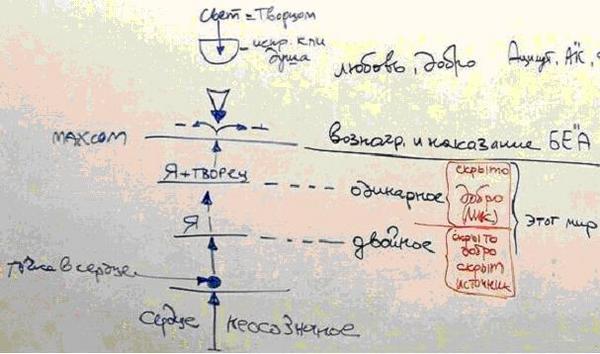 свет = Творцом
испр. кли
душа
любовь, добро Ацилут, АК,
махсом вознагр. и наказание БЕА
Я + творец одинарное
скрыто
добро
Я двойное
скрыто
добро
скрыт
источник
этот мир
точка в сердце
сердце неосознаное